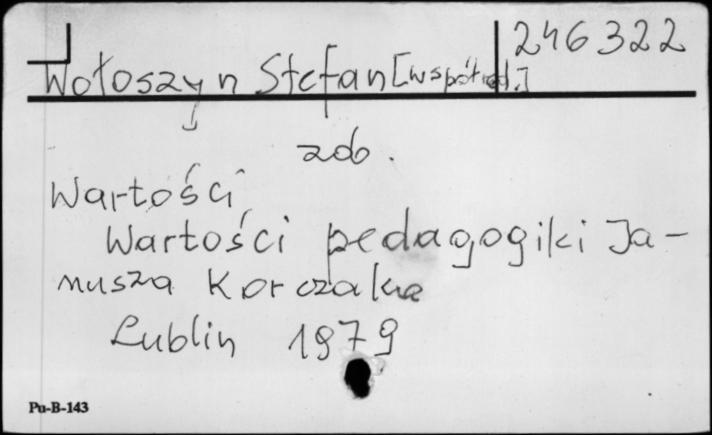 246322
Wołoszyn Stefan [współred.]
zob.
Wartości
Wartości pedagogiki Ja-
nusza Korczaka
Lublin 1979
Pu-B-143